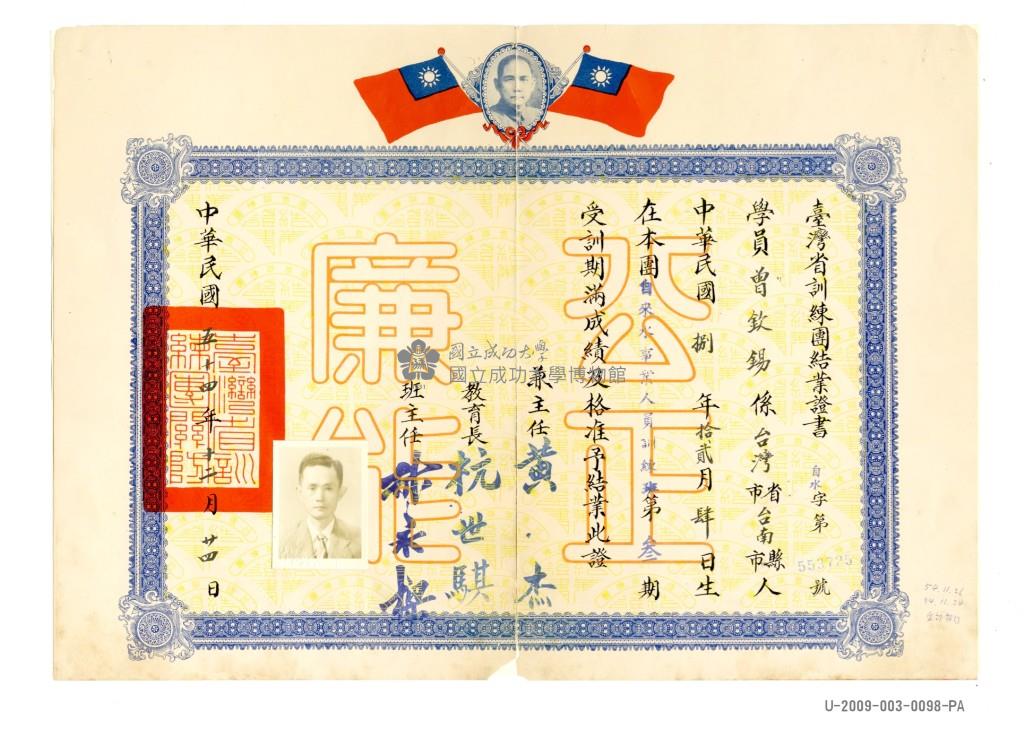 臺灣省訓練團結業證書
自水字第553725號
學員曾欽錫係台灣省市台南縣市人
中華民國捌年拾貳月肆日生
在本團自來水事業人員訓練班第叁期
受訓期滿成績及格准予結業此證
兼主任黃杰
教育長杭世騏
班主任
中華民國五十四年十二月廿四日
公正
廉能
臺灣省訓練團關防
國立成功大學
國立成功大學博物館
54.11.26
U-2009-003-0098-PA